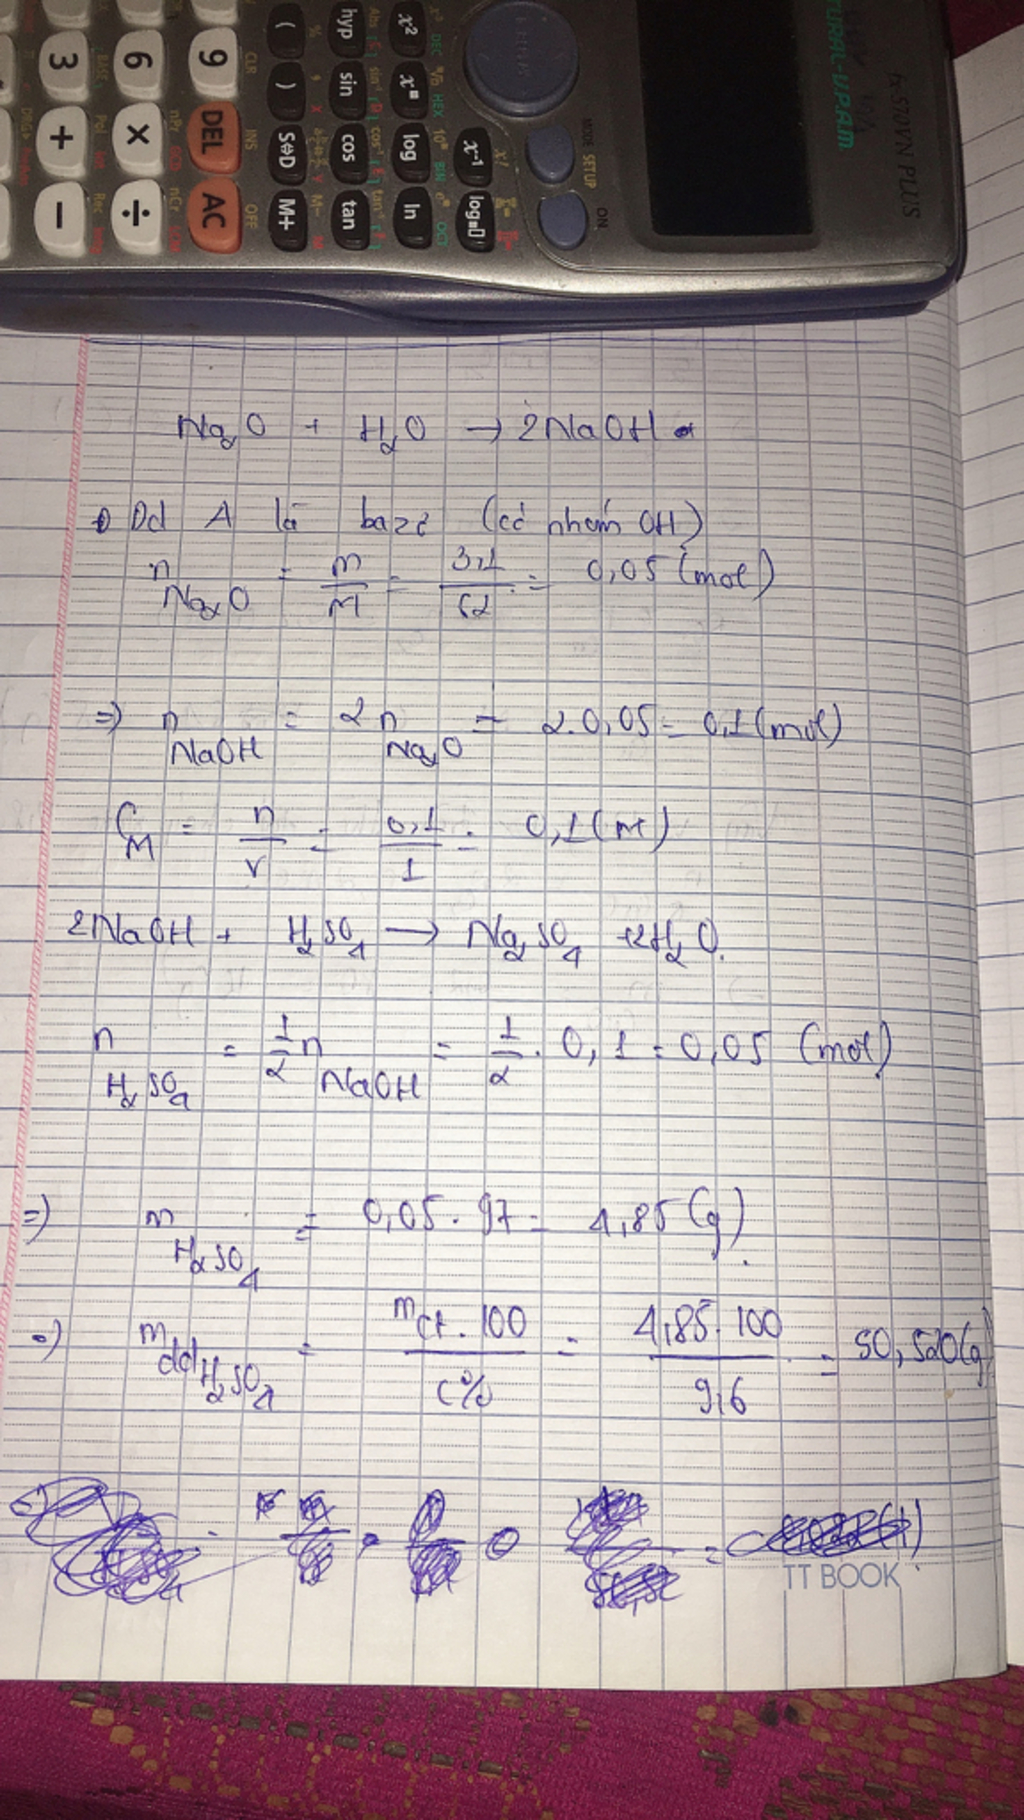 TURAL-V.P.A.M.
fx-570VN PLUS
MODE SETUP
ON
x⁻¹ log
x² x■ log ln
hyp sin cos tan
( ) S⇔D M+
9 DEL AC
6 × ÷
3 + −
Na2O + H2O → 2NaOH
Dd A là bazơ (có nhóm OH)
n Na2O = m/M = 3,1/62 = 0,05 (mol)
=) n NaOH = 2 n Na2O = 2.0,05 = 0,1 (mol)
C M = n/V = 0,1/1 = 0,1 (M)
2NaOH + H2SO4 → Na2SO4 + 2H2O.
n H2SO4 = 1/2 n NaOH = 1/2 . 0,1 = 0,05 (mol)
=) m H2SO4 = 0,05 . 97 = 4,85 (g).
=) m dd H2SO4 = mct . 100/C% = 4,85 . 100/9,6 = 50,520 (g)
TT BOOK